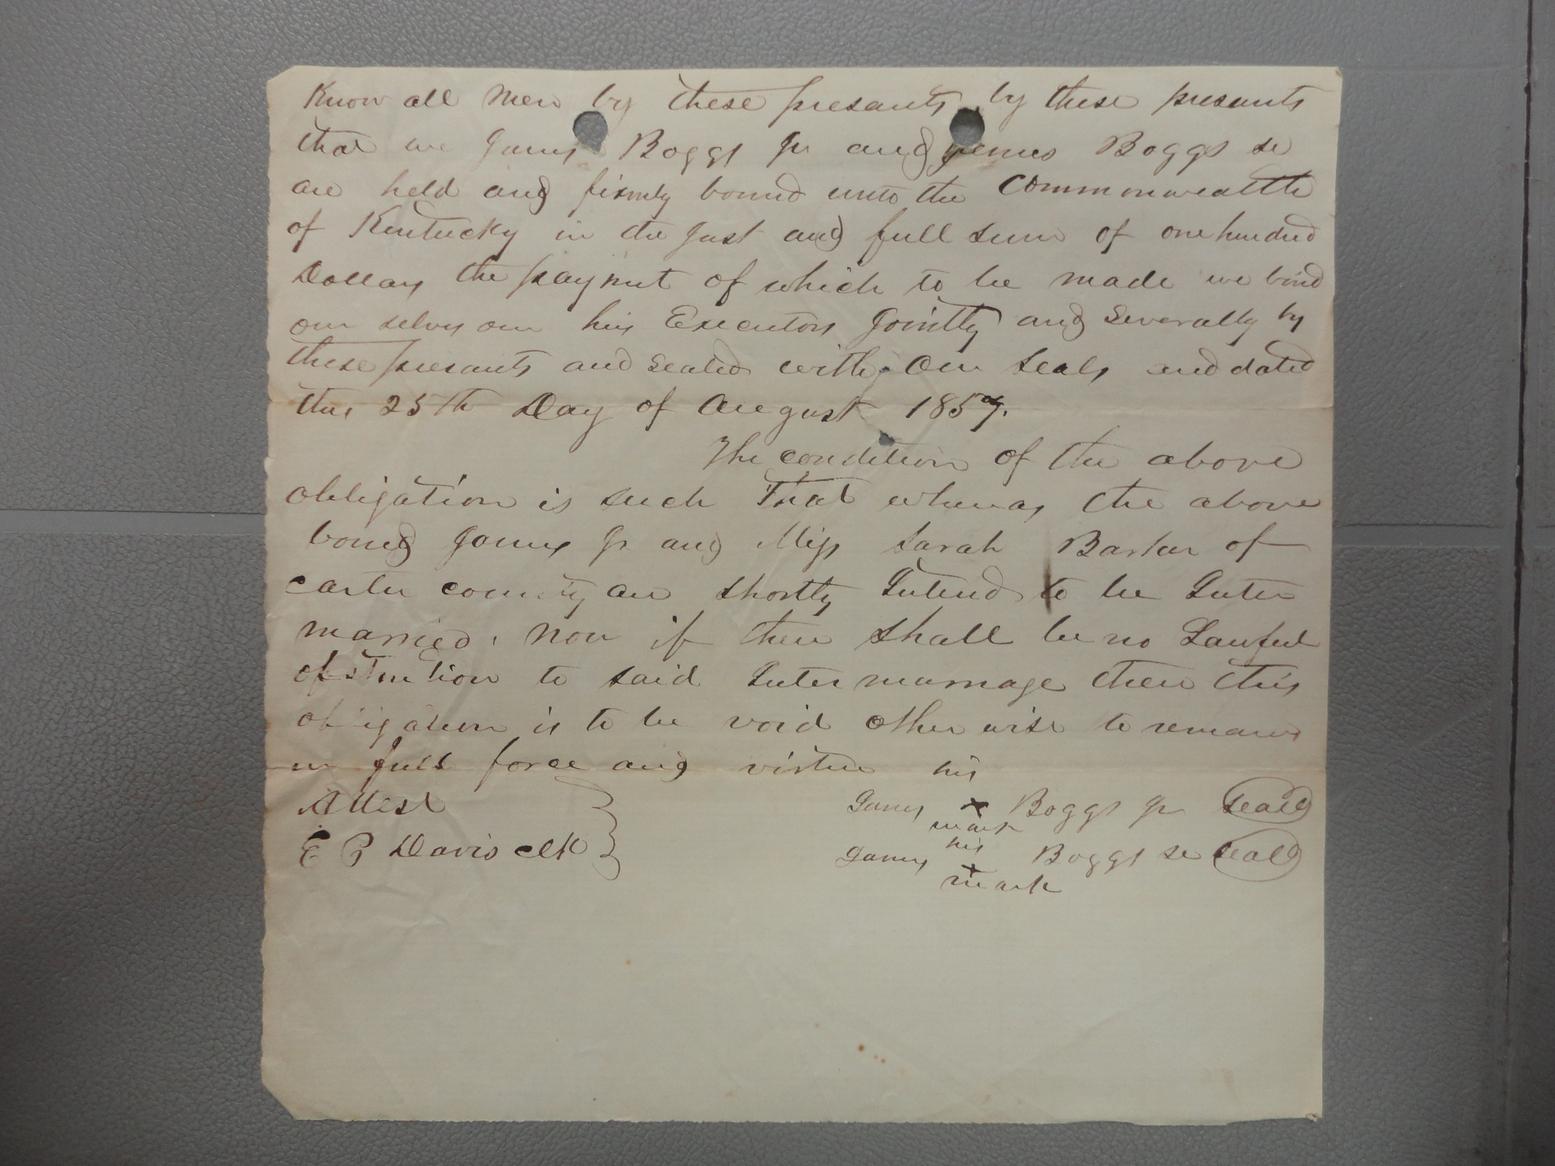 Know all Men by these presants by these presants
that we James Boggs Jr and James Boggs sr
are held and firmly bound unto the Commonwealth
of Kentucky in the Just and full sum of one hundred
Dollars the payment of which to be made we bind
our selvs our his Executors Jointly and Severally by
these presants and Sealed with our Seals and dated
this 25th Day of August 1857.
The condition of the above
obligation is such That whereas the above
bound James Jr and Miss Sarah Barker of
carter county are shortly Intend to be Inter
married, now if there shall be no Lawful
obstruction to said Inter marriage then this
obligation is to be void other wise to remain
in full force and virtue his
Attest James x Boggs Jr Seald
mark
E P Davis clk his
James x Boggs sr Seald
mark